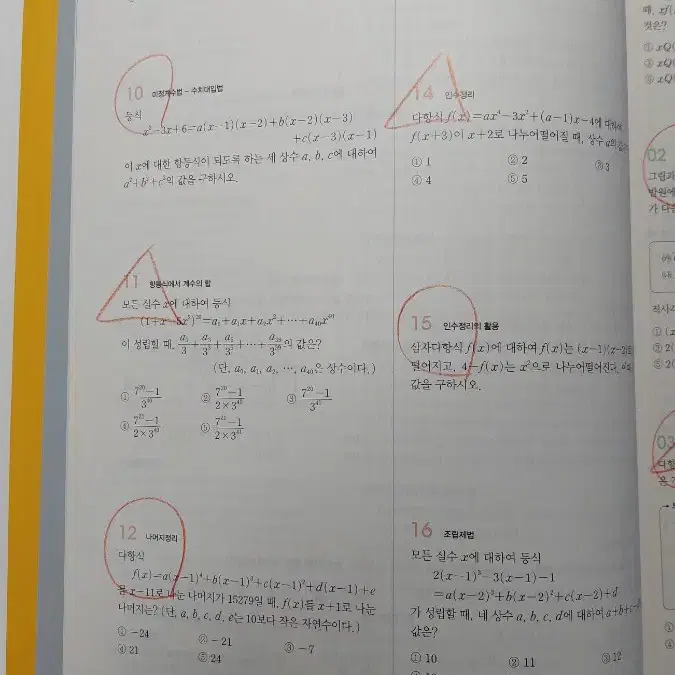 10 미정계수법 - 수치대입법
등식
x²-3x+6=a(x-1)(x-2)+b(x-2)(x-3)
+c(x-3)(x-1)
이 x에 대한 항등식이 되도록 하는 세 상수 a, b, c에 대하여
a²+b²+c²의 값을 구하시오.
11 항등식에서 계수의 합
모든 실수 x에 대하여 등식
(1+x-5x²)²⁰=a₀+a₁x+a₂x²+⋯+a₄₀x⁴⁰
이 성립할 때,
의 값은?
(단, a₀, a₁, a₂, ⋯, a₄₀은 상수이다.)
① ② ③
④ ⑤
12 나머지정리
다항식
f(x)=a(x-1)⁴+b(x-1)³+c(x-1)²+d(x-1)+e
을 x-11로 나눈 나머지가 15279일 때, f(x)를 x+1로 나눈
나머지는? (단, a, b, c, d, e는 10보다 작은 자연수이다.)
① -24 ② -21 ③ -7
④ 21 ⑤ 24
14 인수정리
다항식 f(x)=ax⁴-3x²+(a-1)x-4에 대하여
f(x+3)이 x+2로 나누어떨어질 때, 상수 a의
① 1 ② 2 ③ 3
④ 4 ⑤ 5
15 인수정리의 활용
삼차다항식 f(x)에 대하여 f(x)는 (x-1)(x-2)
떨어지고, 4-f(x)는 x²으로 나누어떨어진다.
값을 구하시오.
16 조립제법
모든 실수 x에 대하여 등식
2(x-1)³-3(x-1)-1
=a(x-2)³+b(x-2)²+c(x-2)+d
가 성립할 때, 네 상수 a, b, c, d에 대하여 a+b+c
값은?
① 10 ② 11 ③ 12
때,
것은?
① xQ(
③ xQ(
⑤ xQ(
02
그림과
밭원에
가 다음
직사각
① (x
③ 2(
⑤ 2(
03
다항